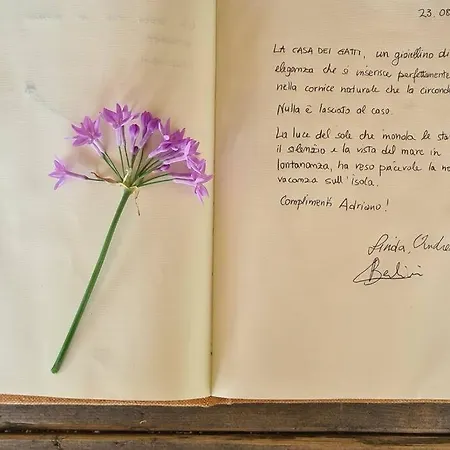 23.08
LA CASA DEI GATTI, un gioiellino di
eleganza che si inserisce perfettamente
nella cornice naturale che la circonda
Nulla è lasciato al caso.
La luce del sole che inonda le sta
il silenzio e la vista del mare in
lontananza, ha reso piacevole la no
vacanza sull'isola.
Complimenti Adriano!
Linda, Andre